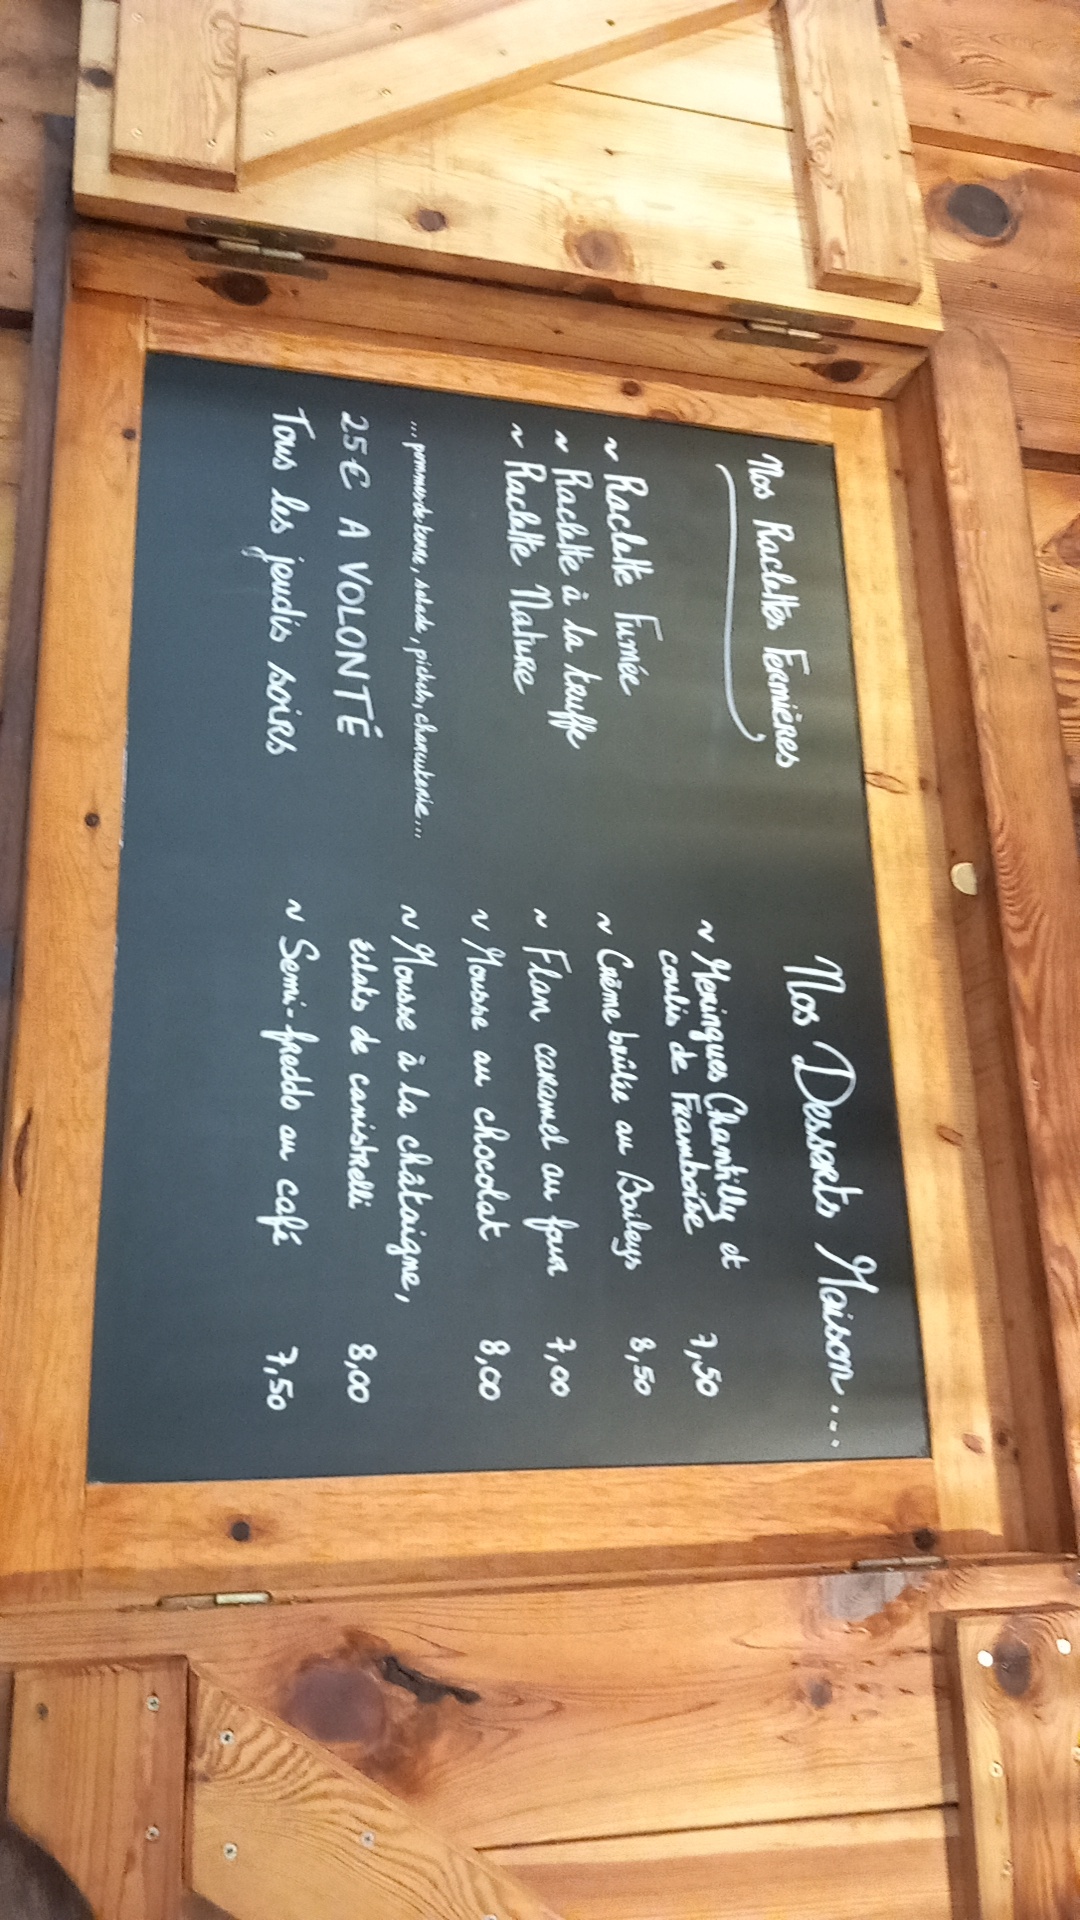 Nos Raclettes Fermières
~ Raclette Fumée
~ Raclette à la truffe
~ Raclette Nature
... pommes de terre, salade, pickels, charcuterie...
25€ A VOLONTÉ
Tous les jeudis soirs
Nos Desserts Maison....
~ Meringues Chantilly et
coulis de Framboise 7,50
~ Crème brûlée au Baileys 8,50
~ Flan caramel au four 7,00
~ Mousse au chocolat 8,00
~ Mousse à la châtaigne,
éclats de canistrelli 8,00
~ Semi-freddo au café 7,50